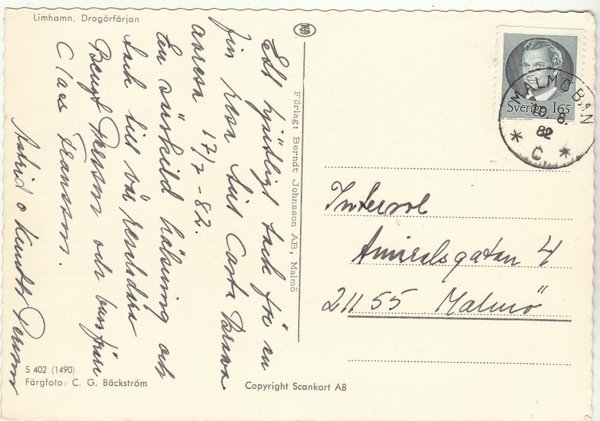 Limhamn. Dragörfärjan
Ett hjärtligt tack för en
fin resa till Costa Brava
avresa 17/7-82.
En särskild hälsning och
tack till vår reseledare
Bengt Persson och busschauffören
Claes Fransson.
Astrid o Knut Persson
S 402 (1490)
Färgfoto: C. G. Bäckström
Förlag: Berndt Johnsson AB, Malmö
Copyright Scankort AB
Sverige 165
MALMÖ BAN
10.8.
82
* C *
Intersol
Amiralsgatan 4
211 55 Malmö